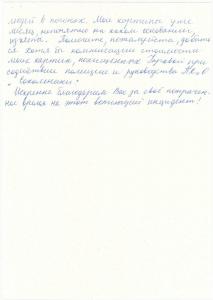 людей в погонах. Мои картины уже
месяц, непонятно на каком основании,
изъяты. Помогите, пожалуйста, добить
ся хотя бы компенсации стоимости
моих картин, похищенных при
содействии полиции и руководства
"Сокольники"
Искренне благодарим Вас за своё потрачен-
ное время на этот вопиющий инцидент!